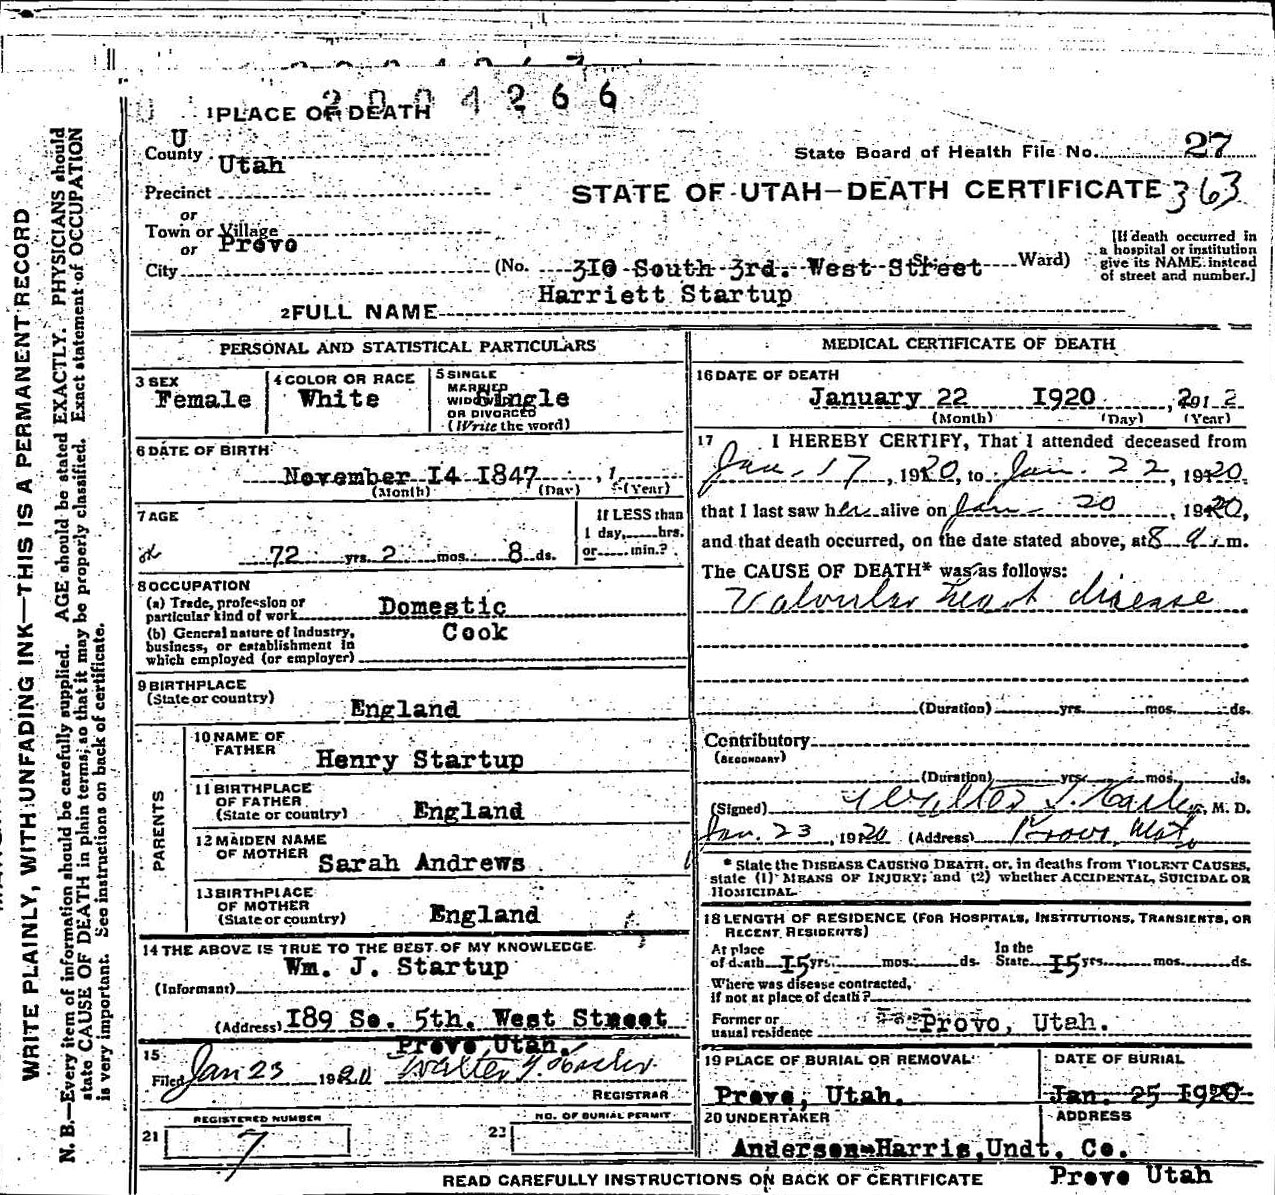 2004266
1 PLACE OF DEATH
U
County Utah
State Board of Health File No. 27
Precinct
STATE OF UTAH—DEATH CERTIFICATE 363
or
Town or Village
or Provo
City (No. 310 South 3rd. West Street St. Ward)
[If death occurred in
a hospital or institution
give its NAME instead
of street and number.]
Harriett Startup
2 FULL NAME
PERSONAL AND STATISTICAL PARTICULARS
3 SEX
Female
4 COLOR OR RACE
White
5 SINGLE
MARRIED
WIDOWED
OR DIVORCED
(Write the word)
Single
6 DATE OF BIRTH
November 14 1847, 1
(Month) (Day) (Year)
7 AGE
72 yrs. 2 mos. 8 ds.
If LESS than
1 day, hrs.
or min.?
8 OCCUPATION
(a) Trade, profession or
particular kind of work Domestic
(b) General nature of Industry,
business, or establishment in
which employed (or employer)
Cook
9 BIRTHPLACE
(State or country)
England
PARENTS
10 NAME OF
FATHER
Henry Startup
11 BIRTHPLACE
OF FATHER
(State or country)
England
12 MAIDEN NAME
OF MOTHER
Sarah Andrews
13 BIRTHPLACE
OF MOTHER
(State or country)
England
14 THE ABOVE IS TRUE TO THE BEST OF MY KNOWLEDGE
Wm. J. Startup
(Informant)
(Address) 189 So. 5th. West Street
Provo Utah.
15
Filed Jan 23 1920 Walter T. Hasler
REGISTRAR
REGISTERED NUMBER
21 7
NO. OF BURIAL PERMIT
22
MEDICAL CERTIFICATE OF DEATH
16 DATE OF DEATH
January 22 1920, 191
(Month) (Day) (Year)
17 I HEREBY CERTIFY, That I attended deceased from
Jan. 17, 1920, to Jan. 22, 1920.
that I last saw her alive on Jan. 20, 1920,
and that death occurred, on the date stated above, at 8 a.m.
The CAUSE OF DEATH* was as follows:
Valvular heart disease
(Duration) yrs. mos. ds.
Contributory
(SECONDARY)
(Duration) yrs. mos. ds.
(Signed) Walter T. Hasler, M. D.
Jan. 23, 1920 (Address) Provo, Utah
* State the DISEASE CAUSING DEATH, or, in deaths from VIOLENT CAUSES,
state (1) MEANS OF INJURY; and (2) whether ACCIDENTAL, SUICIDAL OR
HOMICIDAL.
18 LENGTH OF RESIDENCE (FOR HOSPITALS, INSTITUTIONS, TRANSIENTS, OR
RECENT RESIDENTS)
At place
of death 15 yrs. mos. ds.
In the
State 15 yrs. mos. ds.
Where was disease contracted,
if not at place of death?
Former or
usual residence Provo, Utah.
19 PLACE OF BURIAL OR REMOVAL
Provo, Utah.
DATE OF BURIAL
Jan. 25 1920
20 UNDERTAKER
Anderson-Harris, Undt. Co.
ADDRESS
Provo Utah
READ CAREFULLY INSTRUCTIONS ON BACK OF CERTIFICATE
WRITE PLAINLY, WITH UNFADING INK—THIS IS A PERMANENT RECORD
N. B.—Every item of information should be carefully supplied. AGE should be stated EXACTLY. PHYSICIANS should
state CAUSE OF DEATH in plain terms, so that it may be properly classified. Exact statement of OCCUPATION
is very important. See instructions on back of certificate.